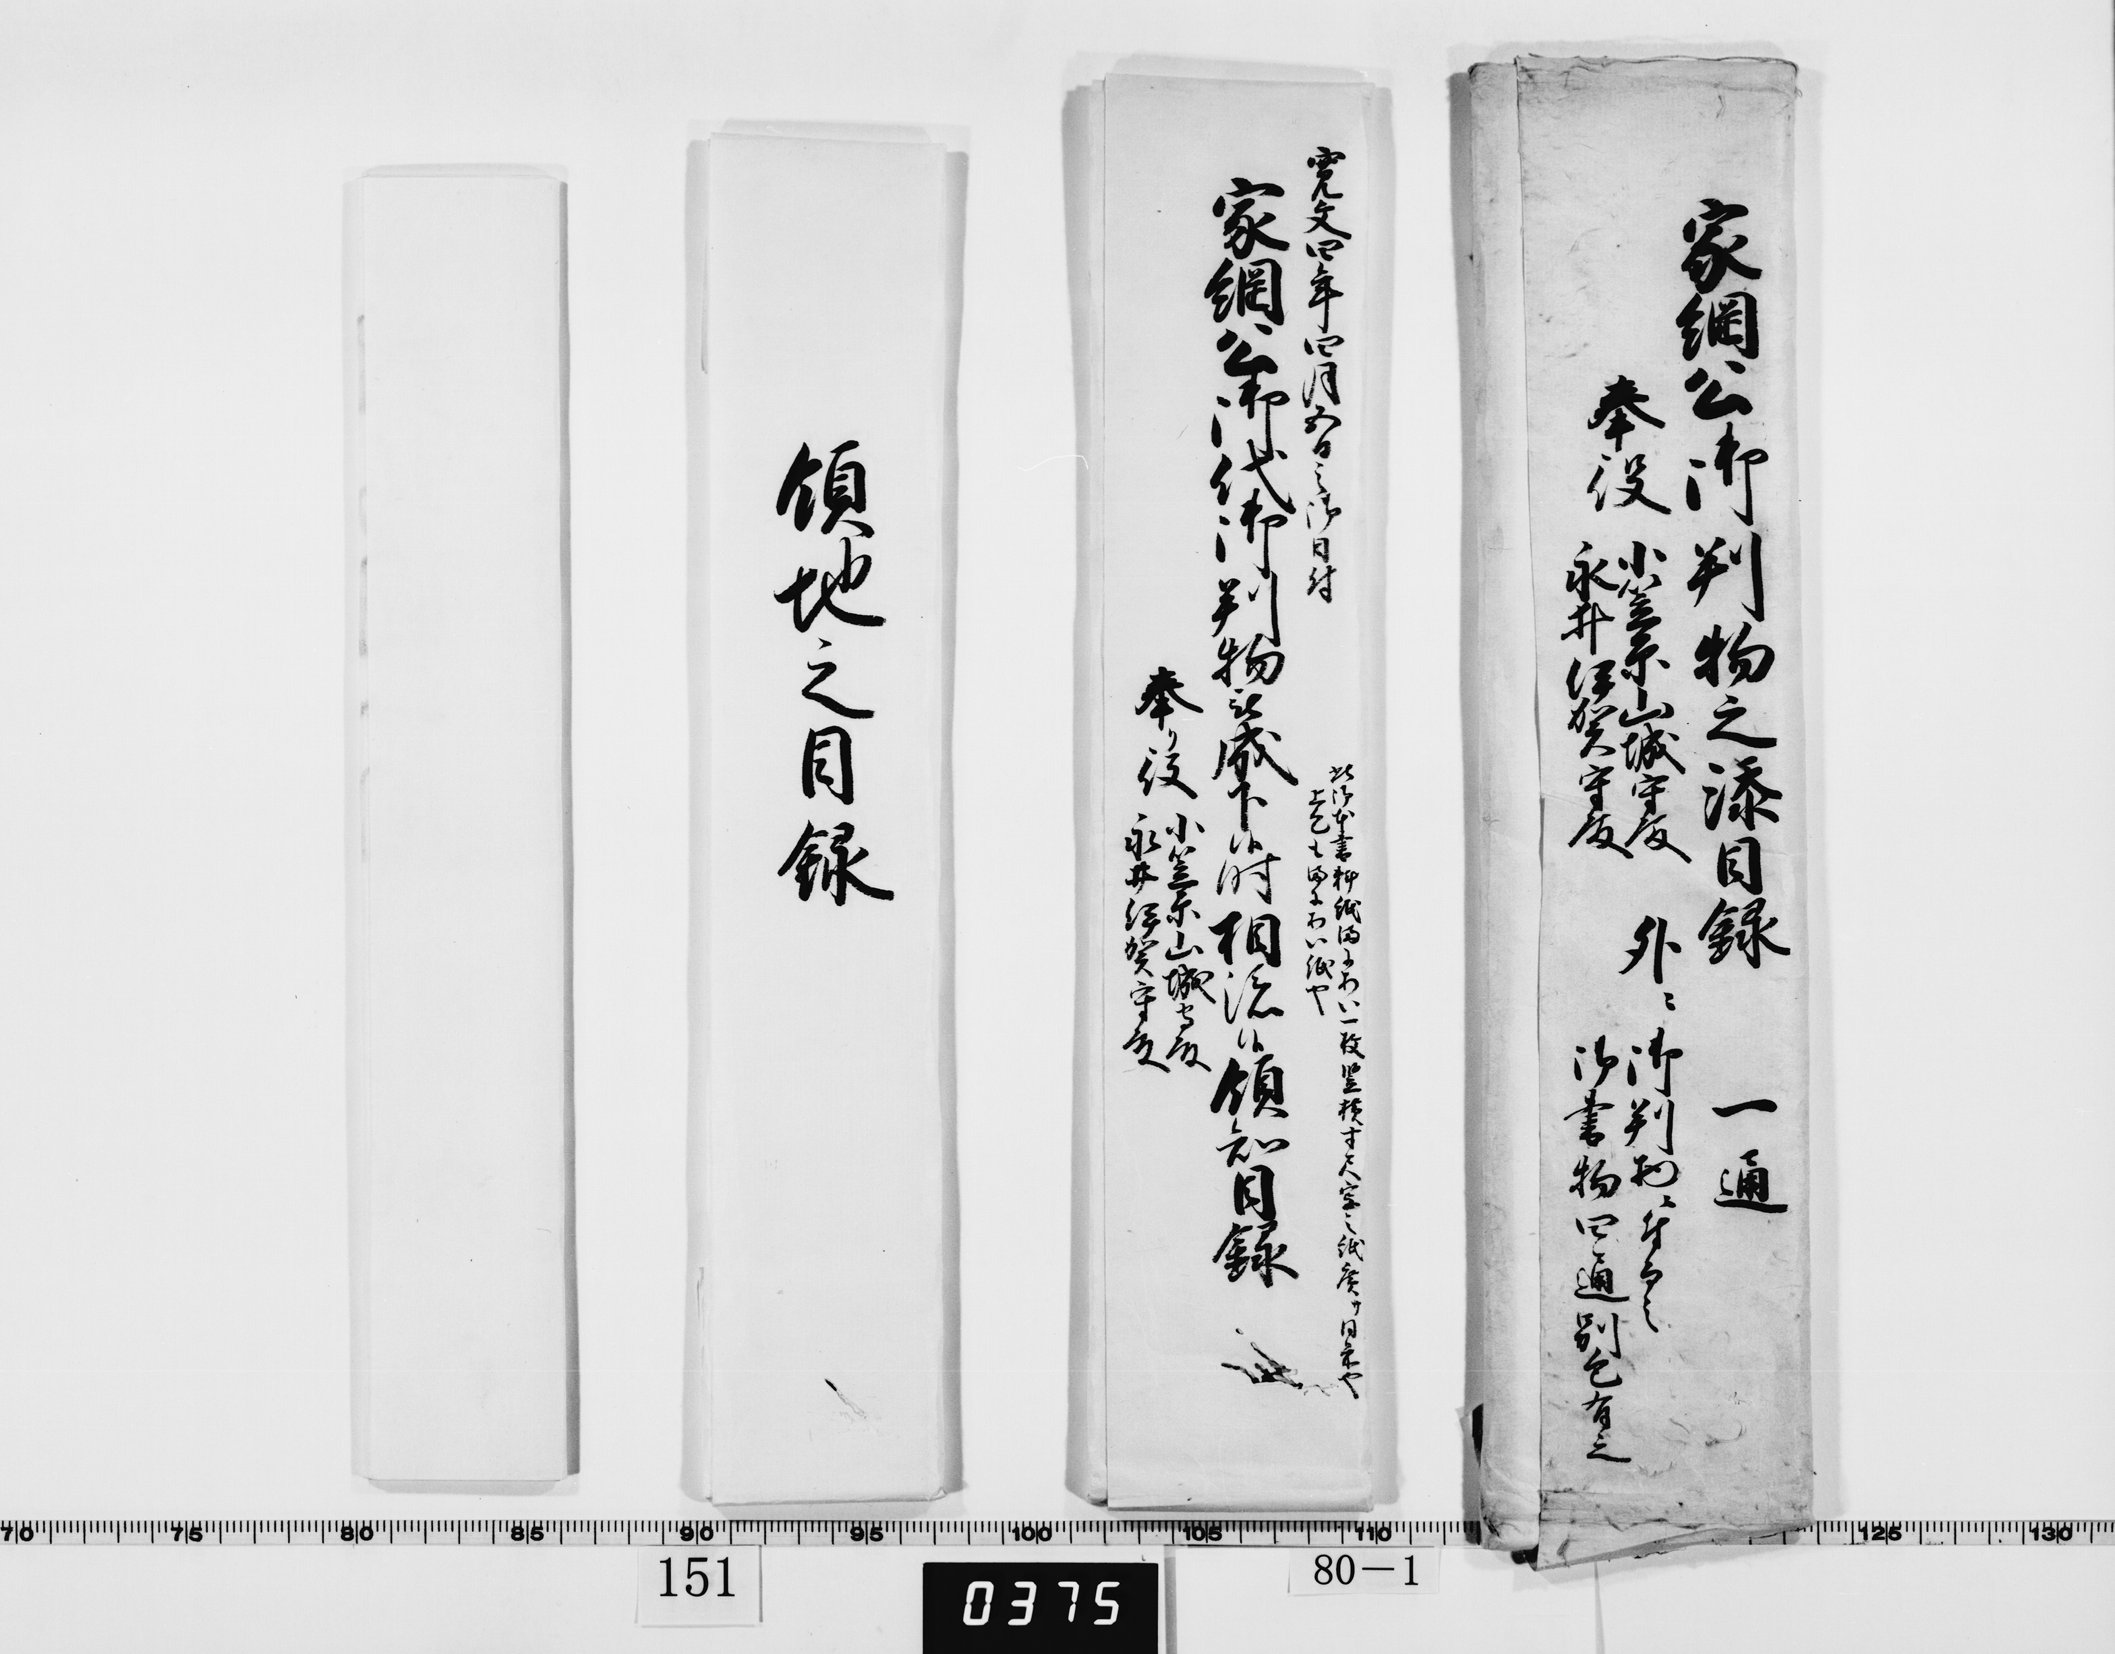 家綱公御判物之添目録　一通
奉役　小笠原山城守殿
永井伊賀守殿
外ニ　御判物ニ付有之
御書物四通別包有之
寛文四年四月五日之御日付
此御本書料紙 一枚竪横寸尺
上包も 紙や
家綱公御代御判物被成下候時相添候領知目録
奉り役　小笠原山城守殿
永井伊賀守殿
領地之目録
70 75 80 85 90 95 100 105 110 125 130
151
0375
80-1